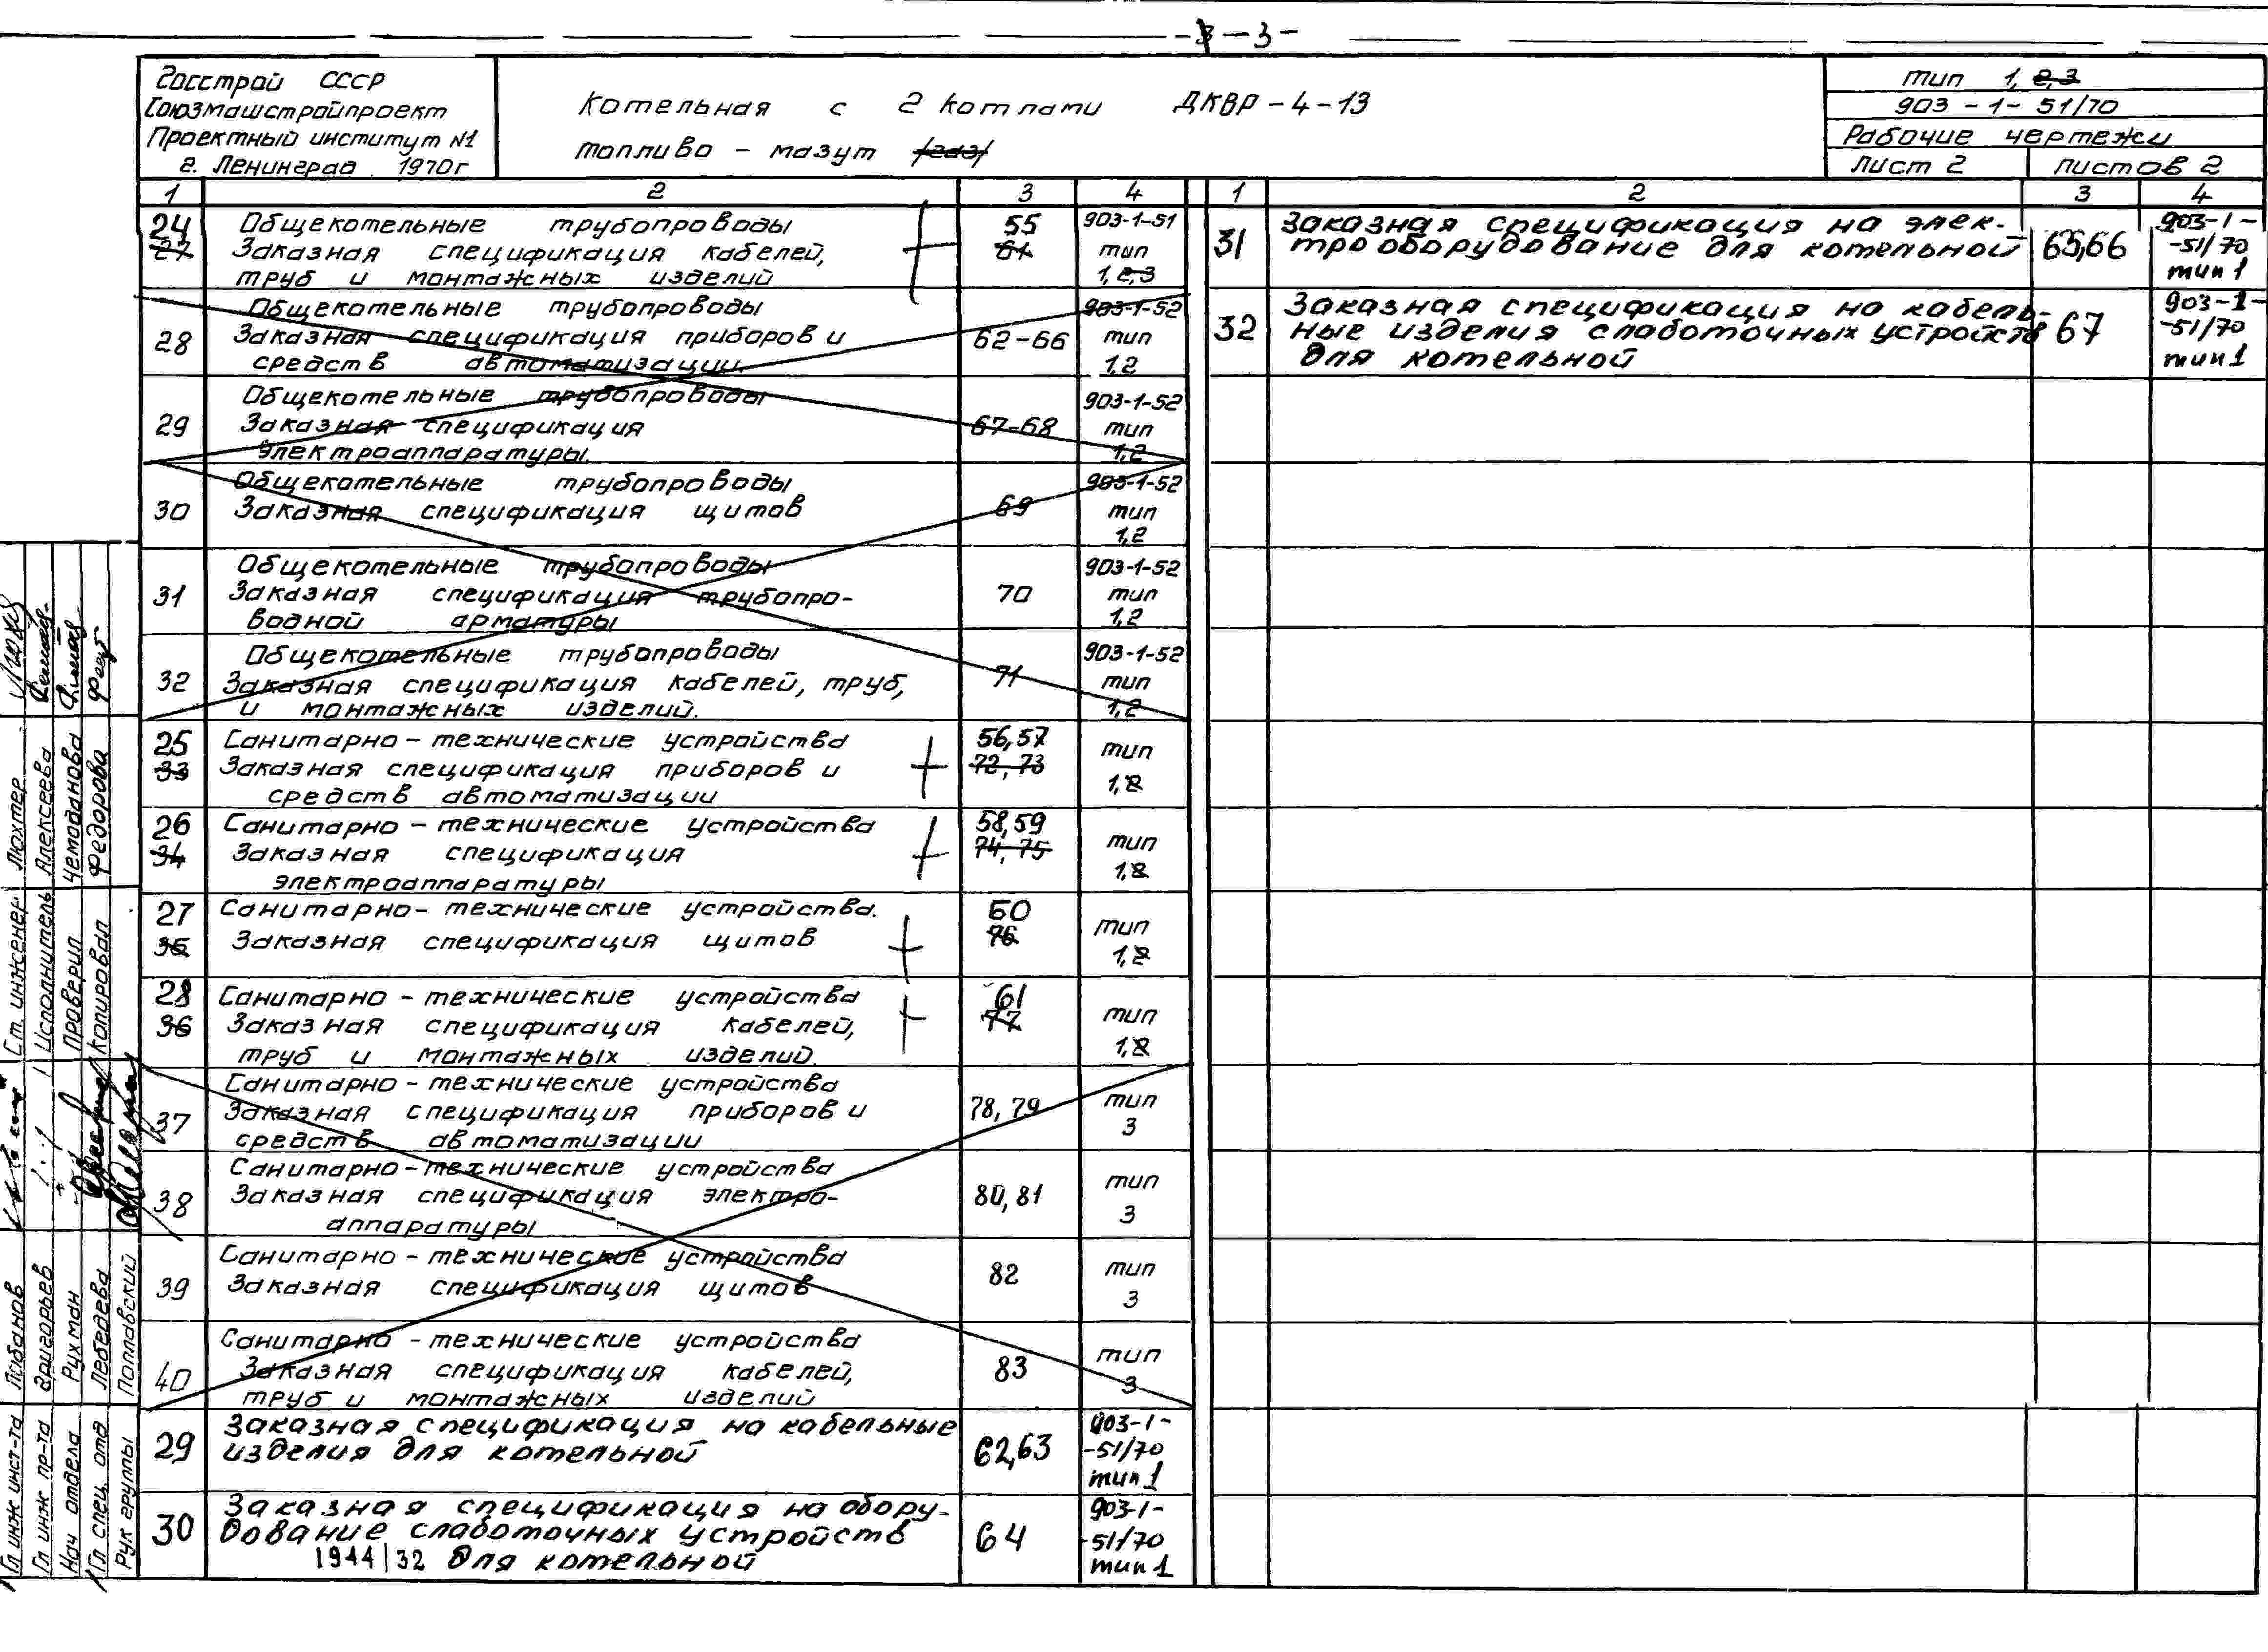 - 3 -
Госстрой СССР
Союзмашстройпроект
Проектный институт №1
г. Ленинград 1970г
Котельная с 2 котлами ДКВР-4-13
топливо - мазут /газ/
тип 1, 2,3
903-1-51/70
Рабочие чертежи
Лист 2 листов 2
1 2 3 4 1 2 3 4
24 Общекотельные трубопроводы 55 903-1-51
27 Заказная спецификация кабелей, 61 тип
труб и монтажных изделий 1,2,3
Общекотельные трубопроводы 903-1-52
28 Заказная спецификация приборов и 62-66 тип
средств автоматизации. 1,2
Общекотельные трубопроводы 903-1-52
29 Заказная спецификация 67-68 тип
электроаппаратуры. 1,2
Общекотельные трубопроводы 903-1-52
30 Заказная спецификация щитов 69 тип
1,2
Общекотельные трубопроводы 903-1-52
31 Заказная спецификация трубопро- 70 тип
водной арматуры 1,2
Общекотельные трубопроводы 903-1-52
32 Заказная спецификация кабелей, труб, 71 тип
и монтажных изделий. 1,2
25 Санитарно-технические устройства 56,57 тип
33 Заказная спецификация приборов и 72,73 1,2
средств автоматизации
26 Санитарно-технические устройства 58,59 тип
34 Заказная спецификация 74,75 1,2
электроаппаратуры
27 Санитарно-технические устройства. 60 тип
35 Заказная спецификация щитов 76 1,2
28 Санитарно-технические устройства 61 тип
36 Заказная спецификация кабелей, 77 1,2
труб и монтажных изделий.
Санитарно-технические устройства тип
37 Заказная спецификация приборов и 78,79 3
средств автоматизации
Санитарно-технические устройства тип
38 Заказная спецификация электро- 80,81 3
аппаратуры
Санитарно-технические устройства тип
39 Заказная спецификация щитов 82 3
Санитарно-технические устройства тип
40 Заказная спецификация кабелей, 83 3
труб и монтажных изделий
Заказная спецификация на кабельные 903-1-
29 изделия для котельной 62,63 -51/70
тип 1
Заказная спецификация на обору- 903-1-
30 дование слаботочных устройств 64 -51/70
1944/32 для котельной тип 1
Заказная спецификация на элек- 903-1-
31 трооборудование для котельной 65,66 -51/70
тип 1
Заказная спецификация на кабель- 903-1-
32 ные изделия слаботочных устройств 67 -51/70
для котельной тип 1
Гл инж инст-та Лобанов Ст. инженер Люхтер
Гл инж пр-та Григорьев Исполнитель Алексеева
Нач отдела Рухман Проверил Чемоданова
Гл спец. отд Лебедева Копировал Федорова
Рук группы Поплавский